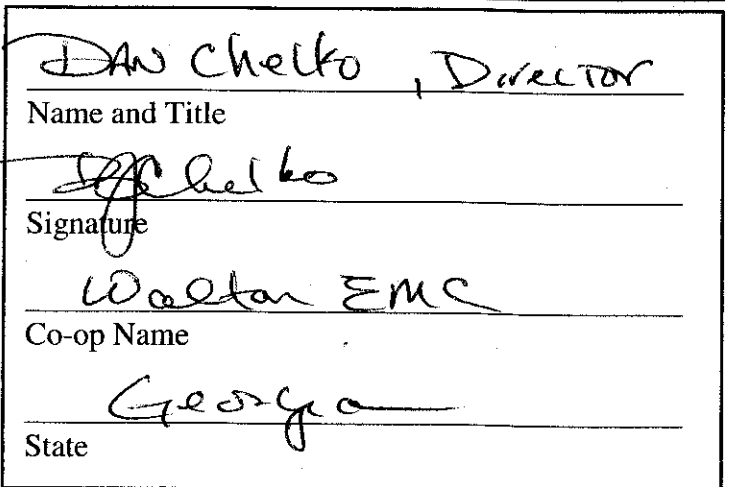 DAN Chelko, Director
Name and Title
DJChelko
Signature
Walton EMC
Co-op Name
Georgia
State